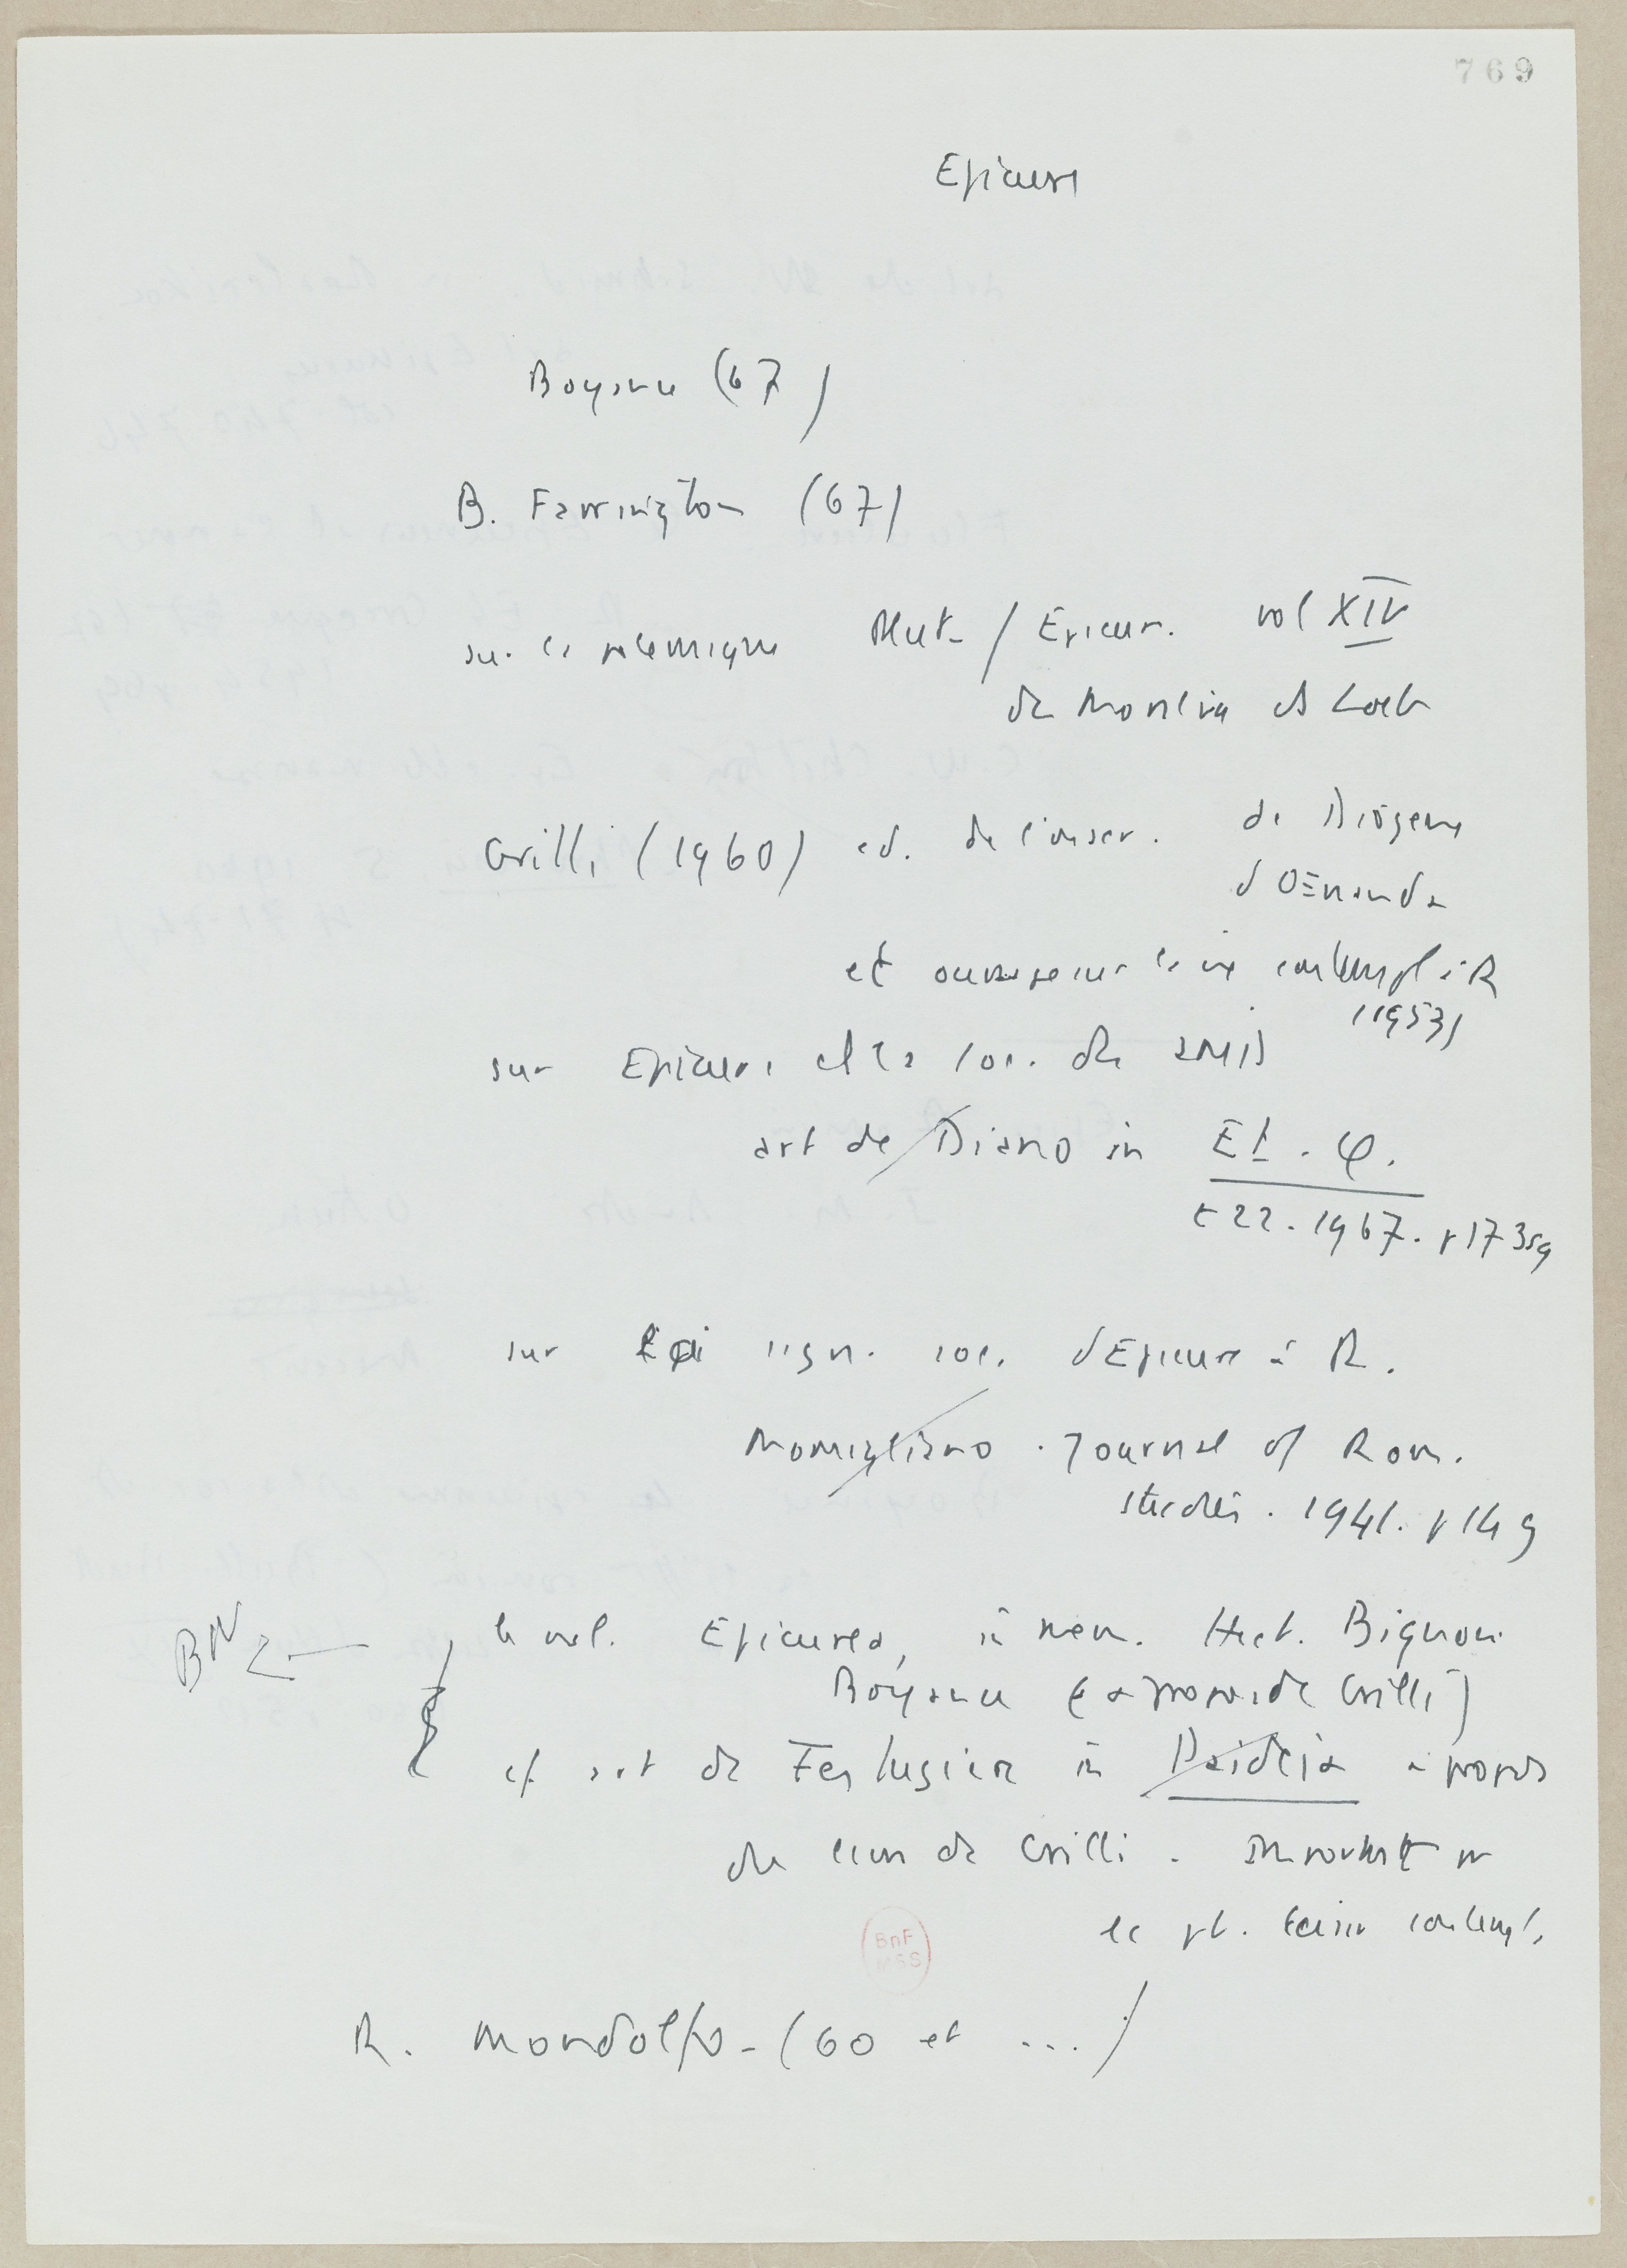 769
Epicure
Boyance (67)
B. Farrington (67)
sur la polemique Plut / Epicur. vol XIV
des Moralia ds Loeb
Grilli (1960) ed. de l'inscr. de Diogene
d'OEnanda
et ouvrage sur la vie contempl à R
(1953)
sur Epicure et la soc. des amis
art de Diano in Et. φ.
t 22. 1967. p 173sq
sur la sign. soc. d'Epicure à R.
Momigliano. Journal of Rom.
studies. 1941. p 149
BN ← le vol. Epicurea, in mem. Hect. Bignone
Boyance (a propos de Grilli)
cf art de Festugière in Paideia a propos
du livre de Grilli. Important pr
le pb. loisir contempl.
BnF
MSS
R. Mondolfo - (60 et ...)